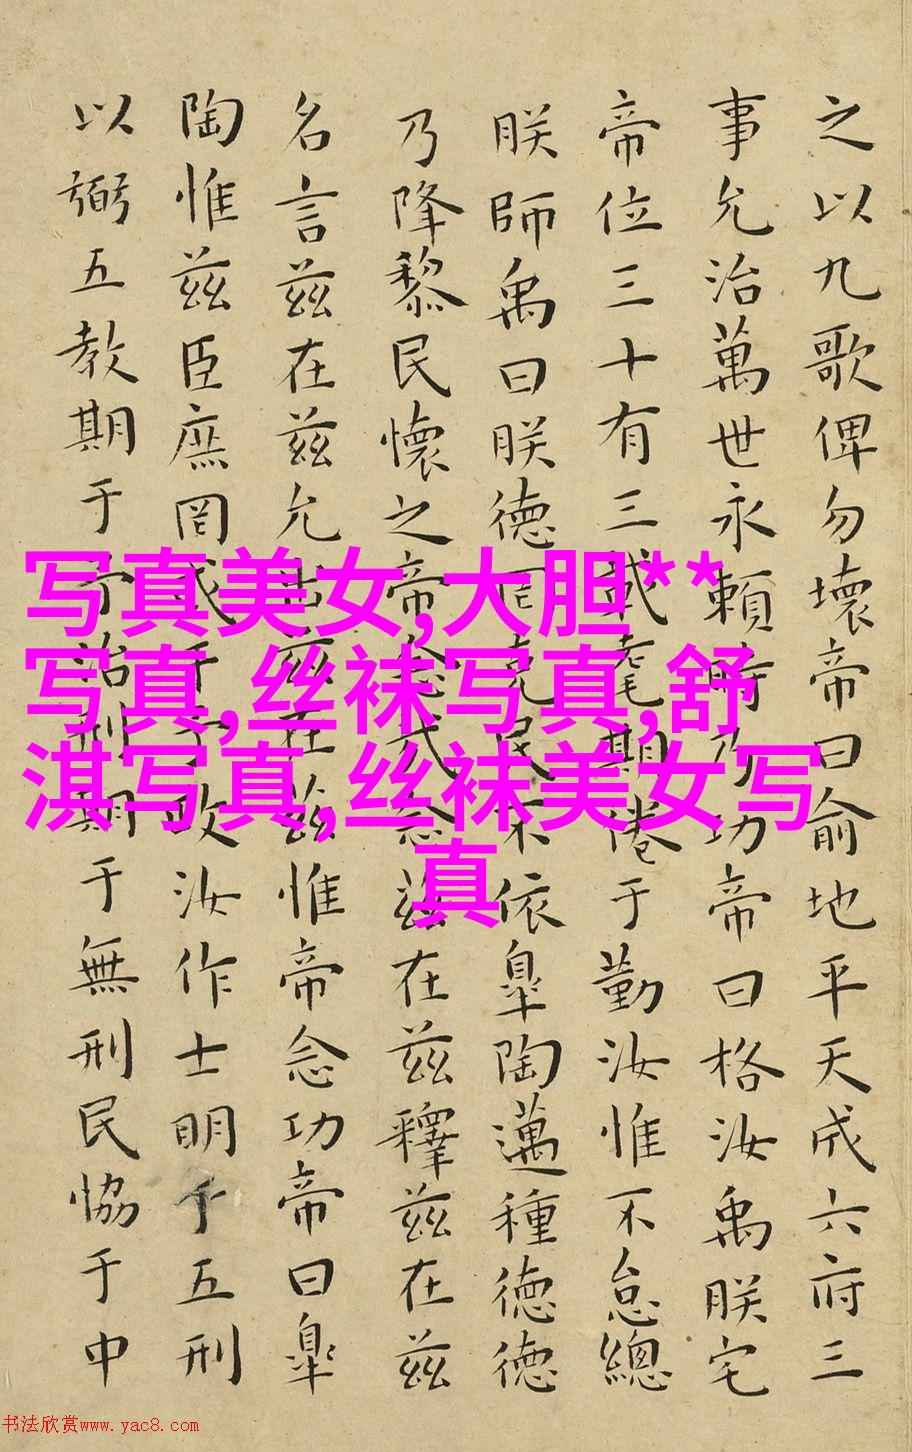 之以九歌俾勿壞帝曰俞地平天成六府三
事允治萬世永賴時乃功帝曰格汝禹朕宅
帝位三十有三載耄期倦于勤汝惟不怠總
朕師禹曰朕德罔克民不依皐陶邁種德德
乃降黎民懷之帝念哉念兹在兹釋兹在兹
名言兹在兹允出兹在兹惟帝念功帝曰皐
陶惟兹臣庶罔或干予政汝作士明于五刑
以弼五教期于予治刑期于無刑民協于中
写真美女,大胆**
写真,丝袜写真,舒
淇写真,丝袜美女写
真
书法欣赏www.yac8.com